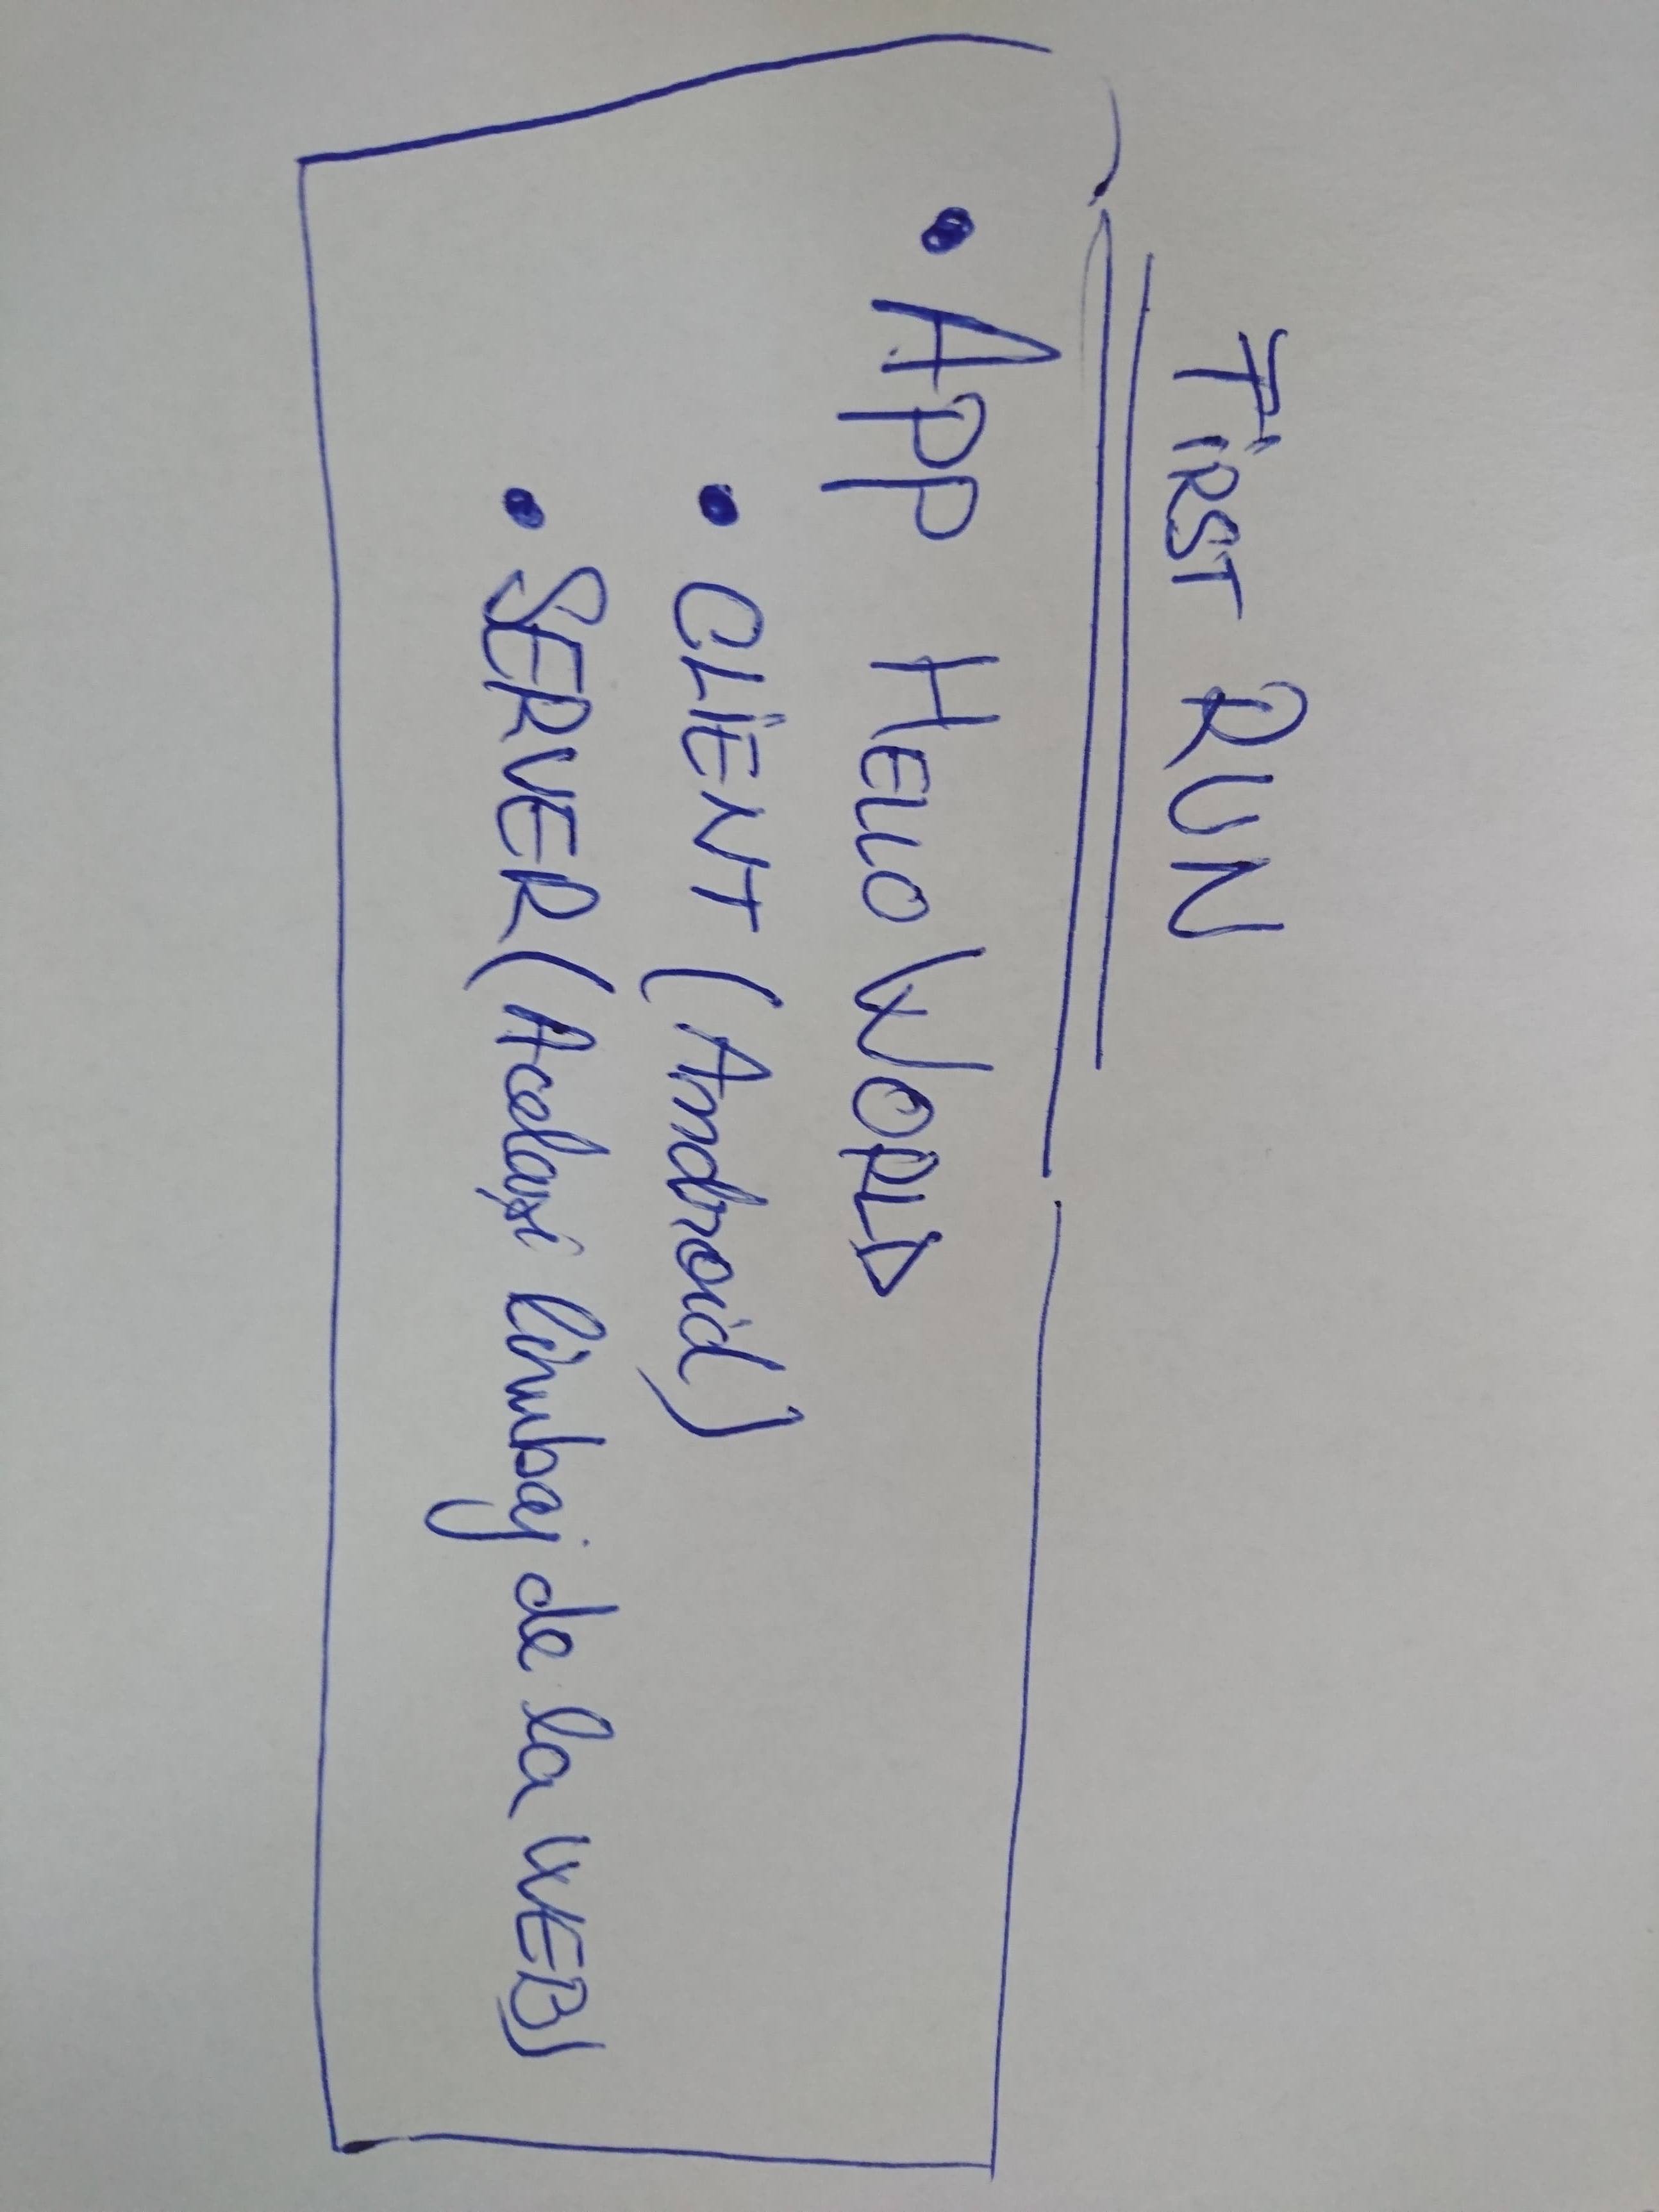 FIRST RUN
• APP HELLO WORLD
• CLIENT (Android)
• SERVER (Același limbaj de la WEB)